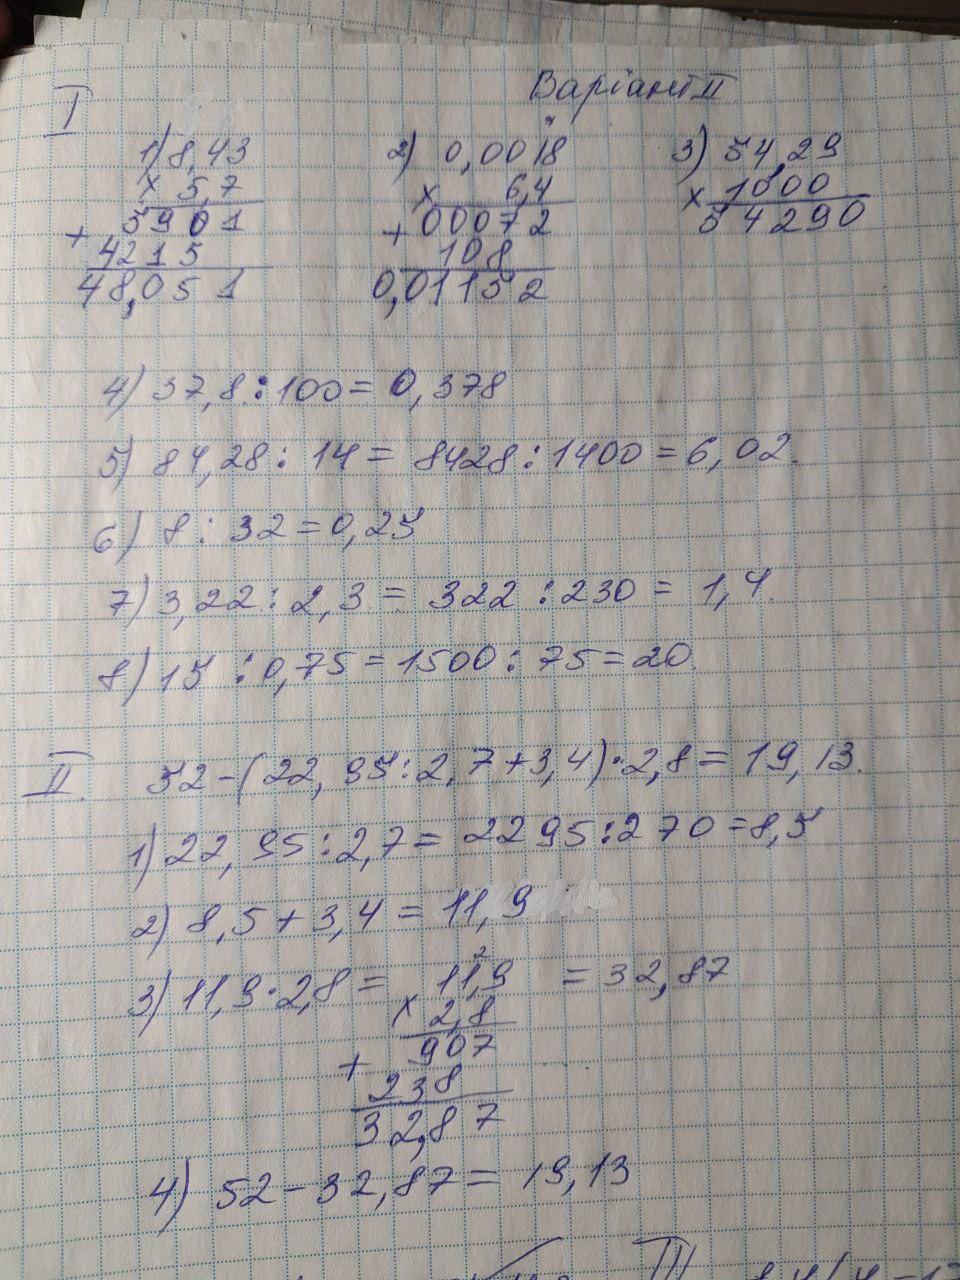 Варіант II
I
1) 8,43 2) 0,0018 3) 54,29
× 5,7 × 6,4 × 1000
5901 00072 54290
+ 4215 + 108
48,051 0,01152
4) 37,8 : 100 = 0,378
5) 84,28 : 14 = 8428 : 1400 = 6,02.
6) 8 : 32 = 0,25
7) 3,22 : 2,3 = 322 : 230 = 1,4.
8) 15 : 0,75 = 1500 : 75 = 20.
II. 52 - (22,95 : 2,7 + 3,4) · 2,8 = 19,13.
1) 22,95 : 2,7 = 2295 : 270 = 8,5
2) 8,5 + 3,4 = 11,9
3) 11,9 · 2,8 = 11,9 = 32,87
× 2,8
907
+ 238
32,87
4) 52 - 32,87 = 19,13
III